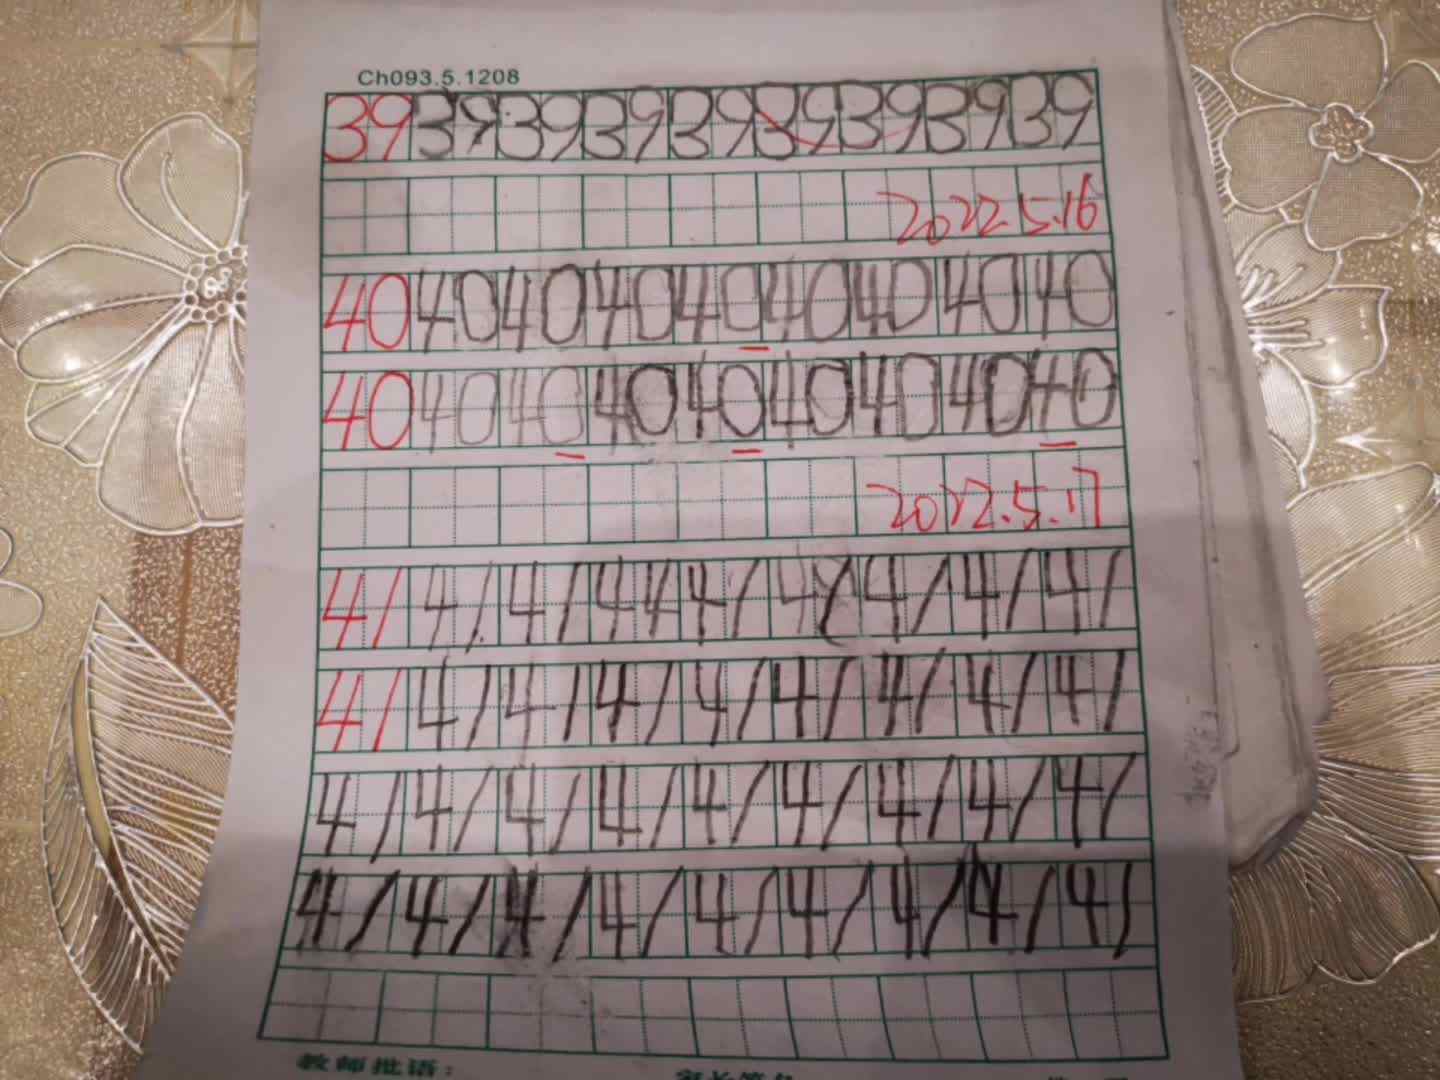 Ch093.5.1208
39 39 39 39 39 39 39 39 39
2022.5.16
40 40 40 40 40 40 40 40 40
40 40 40 40 40 40 40 40 40
2022.5.17
41 41 41 44 41 41 41 41 41
41 41 41 41 41 41 41 41 41
41 41 41 41 41 41 41 41 41
41 41 41 41 41 41 41 41 41
教师批语：